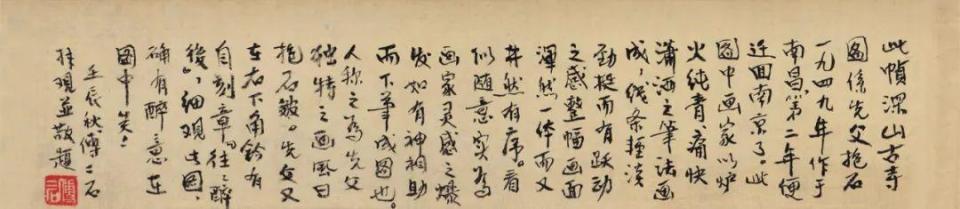 此幀深山古寺
圖係先父抱石
一九四九年作于
南昌。第二年便
迁回南京了。此
圖中画家以炉
火纯青、痛快
潇洒之筆法画
成,线条
劲挺而有跃动
之感整幅画面
渾然一体而又
井然有序。看
似随意实为
画家灵感之爆
发如有神相助
而下筆成圖也。
人称之為先父
独特之画風曰
抱石皴。先父又
在右下角鈐有
自刻章“往〻醉
後”,细观此圖,
确有醉意在
圖中矣!
壬辰秋傅二石
拜观並敬題